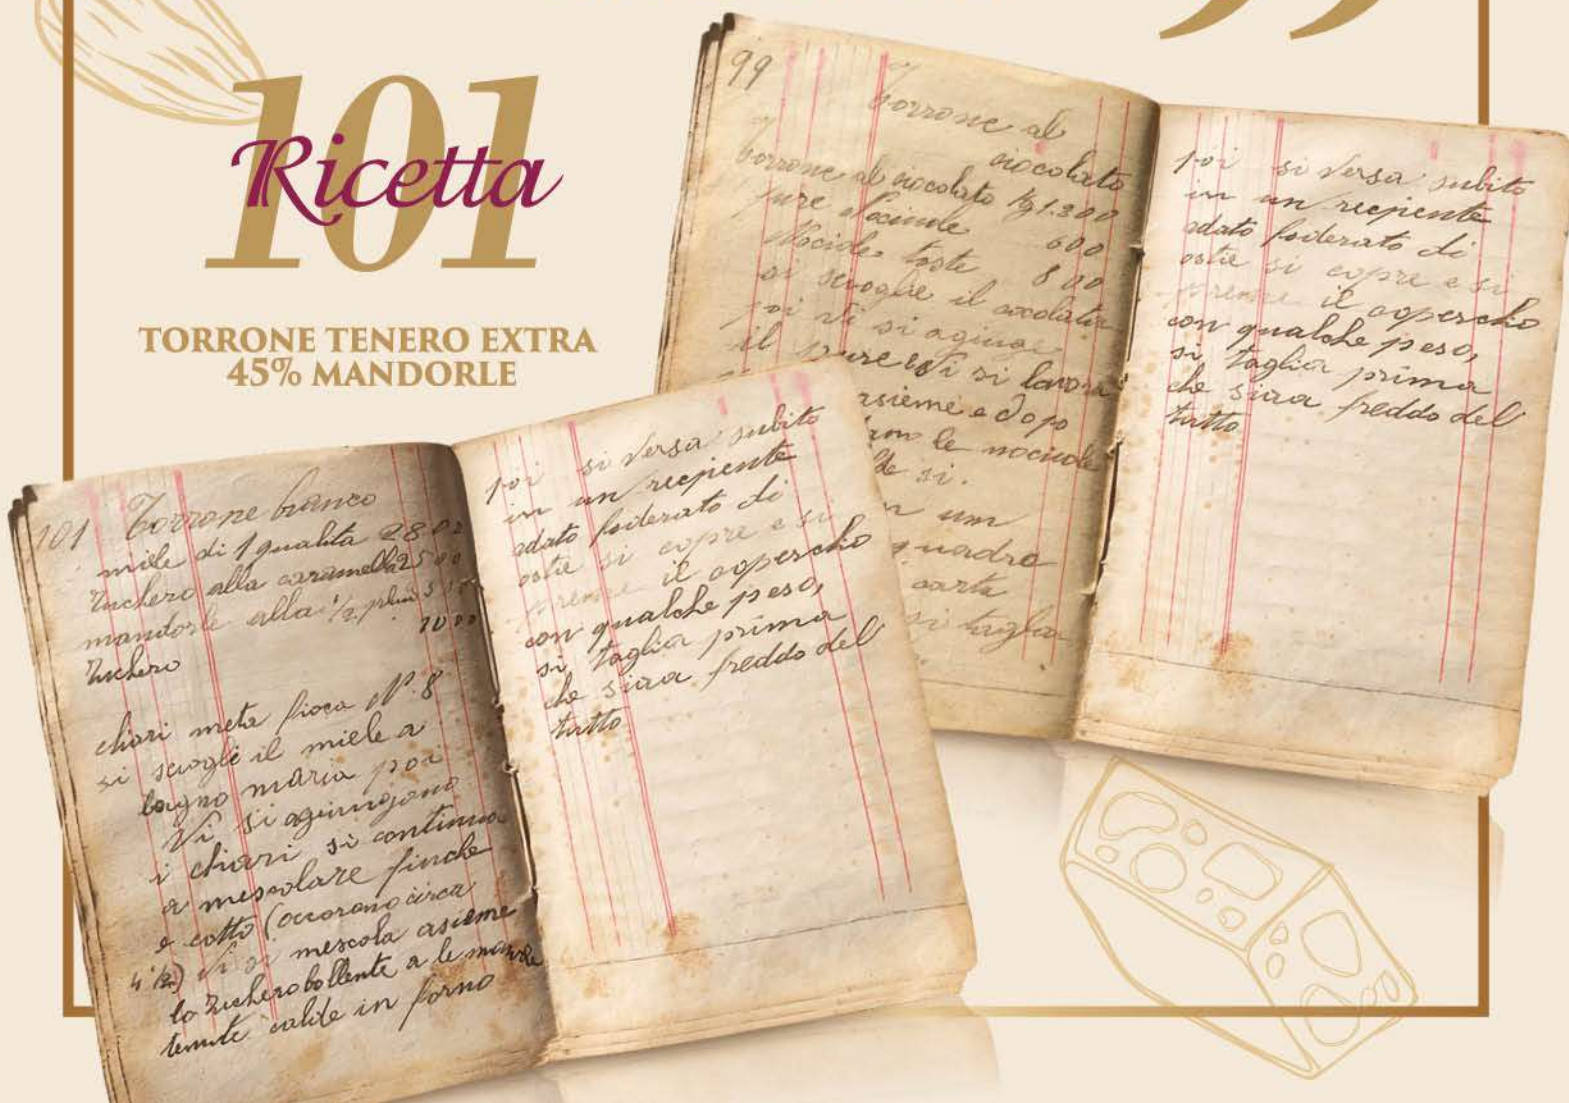 101
Ricetta
TORRONE TENERO EXTRA
45% MANDORLE
99
Torrone al
ciocolato
Torrone al ciocolato Kg 1.200
600
Nociole toste 800
si scioglie il
poi vi si agiunge
il pure vi si lavora
asieme e dopo
le nociuole
si.
un
quadro
carta
si taglia
poi si versa subito
in un recipiente
adato foderato di
ostie si copre e si
preme il coperchio
con qualche peso,
si taglia prima
che siara freddo del
tutto
101 Torrone bianco
miele di 1 qualita 2800
zuchero alla caramella 2500
mandorle alla 1/2
1000
zuchero
chiari meta fioca N. 8
si scioglie il miele a
bagno maria poi
Vi si agiungono
i chiari si continua
a mescolare finche
e cotto (occorano circa
vi si mescola asieme
lo zuchero bollente a le mandole
tenute calde in forno
poi si versa subito
in un recipiente
adato foderato di
ostie si copre e si
preme il coperchio
con qualche peso,
si taglia prima
che siara freddo del
tutto